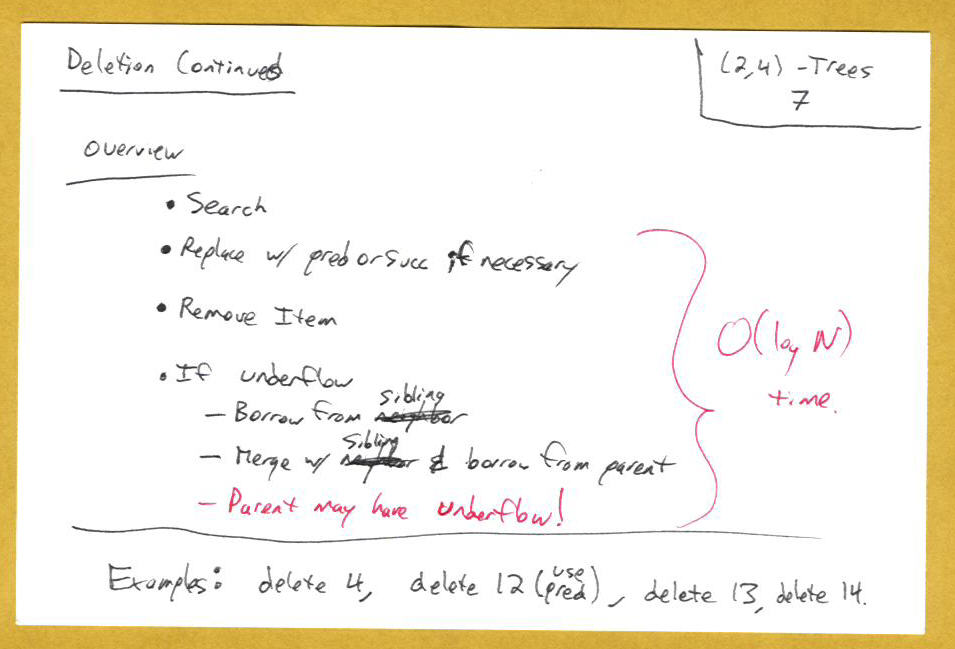 Deletion Continued
(2,4) -Trees
7
Overview
• Search
• Replace w/ pred or succ if necessary
• Remove Item
• If underflow
– Borrow from sibling
– Merge w/ sibling & borrow from parent
– Parent may have underflow!
O(log N)
time.
Examples: delete 4, delete 12 (use pred), delete 13, delete 14.